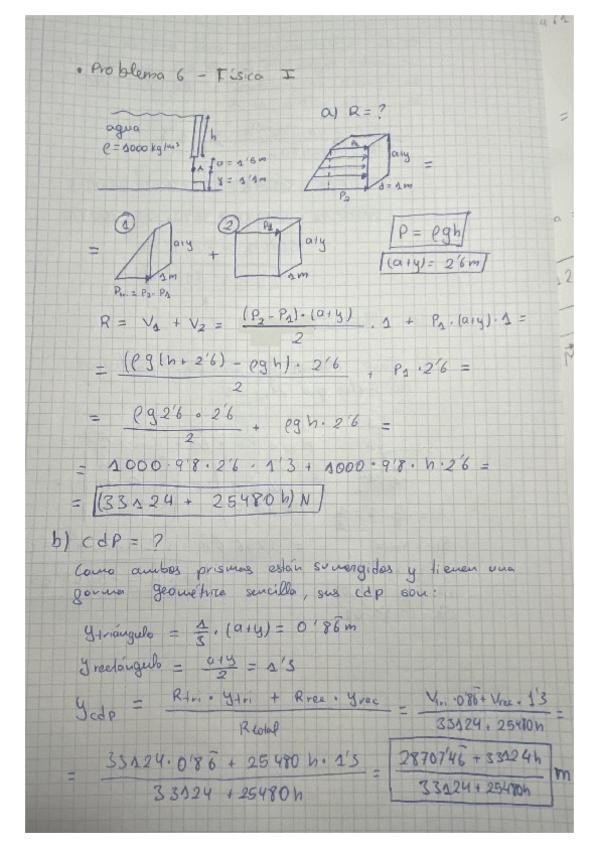 • Problema 6 - Física I
agua
ρ = 1000 kg/m³
h
a = 1'5m
y = 1'1m
a) R = ?
P₁
a+y
d = 1m
P₂
=
= ①
a+y
1m
Ptri = P₂ - P₁
+ ②
P1
a+y
1m
P = ρgh
(a+y) = 2'6m
R = V₁ + V₂ = (P₂ - P₁) · (a+y) / 2 · 1 + P₁ · (a+y) · 1 =
= (ρg(h + 2'6) - ρgh) · 2'6 / 2 + P₁ · 2'6 =
= ρg2'6 · 2'6 / 2 + ρgh · 2'6 =
= 1000 · 9'8 · 2'6 · 1'3 + 1000 · 9'8 · h · 2'6 =
= (33124 + 25480h) N
b) cdp = ?
Como ambos prismas están sumergidos y tienen una
forma geométrica sencilla, sus cdp son:
ytriángulo = 1/3 · (a+y) = 0'86̄ m
yrectángulo = a+y / 2 = 1'3
ycdp = Rtri · ytri + Rrec · yrec / Rtotal = Vtri · 0'86̄ + Vrec · 1'3 / 33124 + 25480h =
= 33124 · 0'86̄ + 25480 h · 1'3 / 33124 + 25480h = 28707'46̄ + 33124h / 33124 + 25480h m